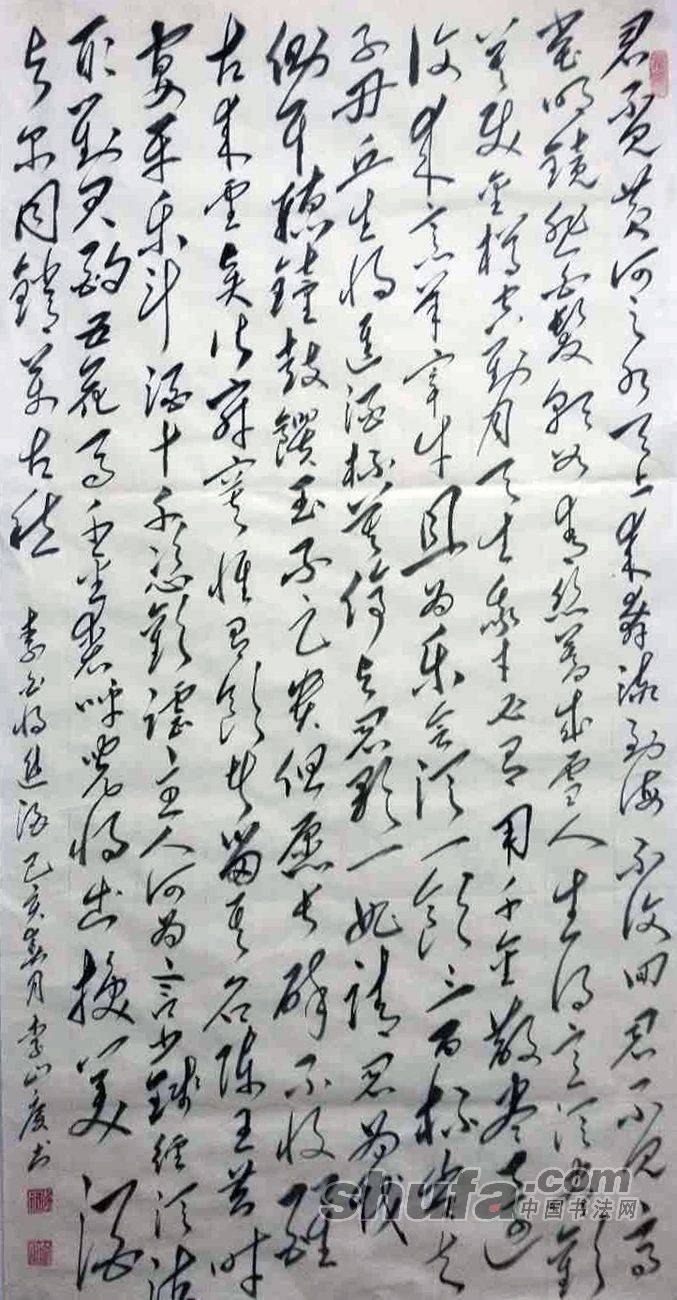 君不見黄河之水天上来奔流到海不復回君不見高
堂明鏡悲白髮朝如青丝暮成雪人生得意须尽歡
莫使金樽空對月天生我才必有用千金散尽还
復来烹羊宰牛且为乐会须一飲三百杯岑夫
子丹丘生将進酒杯莫停与君歌一曲请君为我
侧耳聽鐘鼓饌玉不足贵但愿长醉不復醒
古来圣贤皆寂寞惟有飲者留其名陈王昔时
宴平乐斗酒十千恣歡谑主人何为言少钱径须沽
取對君酌五花马千金裘呼児将出换美酒
与尔同銷万古愁
李白将進酒 己亥春月 李山庆书
shufa.com
中国书法网